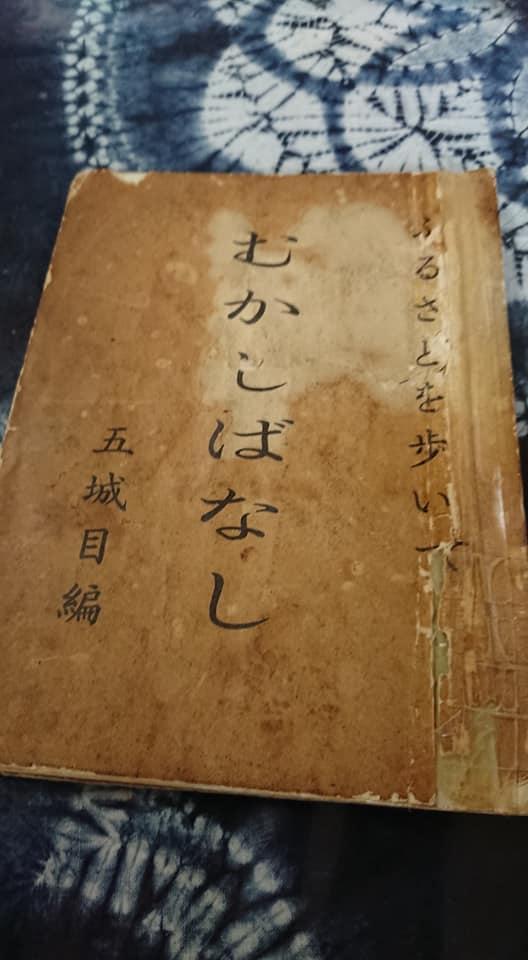 ふるさとを歩いて
むかしばなし
五城目編